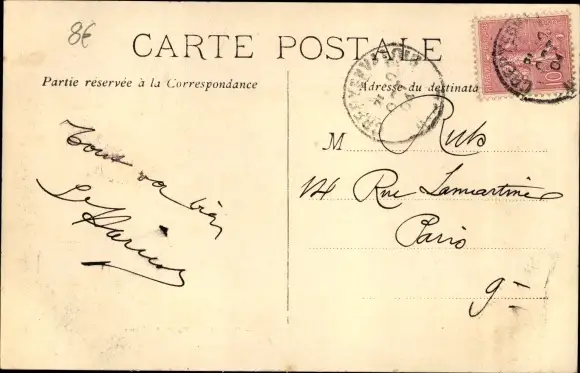 8€
CARTE POSTALE
Partie réservée à la Correspondance
Adresse du destinata
10
Tout va bien
M Rub
14 Rue Lamartine
Paris
9e